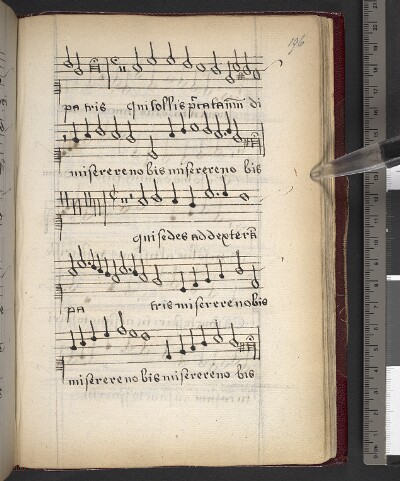 196
pa tris qui tollis pccata mūdi di
miserere no bis miserere no bis
qui sedes ad dexterā
pa tris miserere nobis
miserere no bis miserere no bis